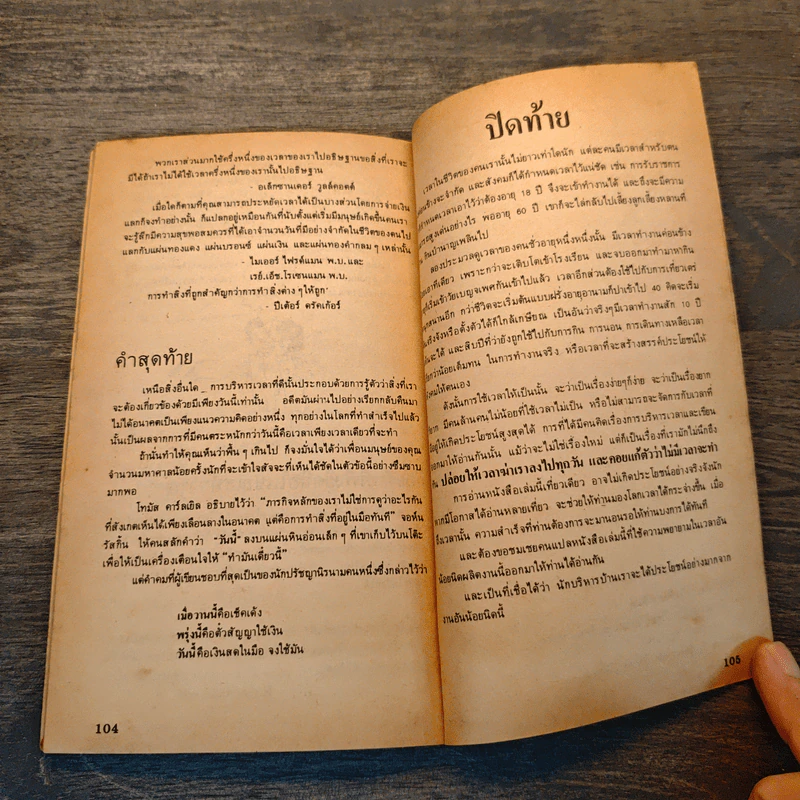 พวกเราส่วนมากใช้ครึ่งหนึ่งของเวลาของเราไปอธิษฐานขอสิ่งที่เราจะ
มีได้ถ้าเราไม่ได้ใช้เวลาครึ่งหนึ่งของเรานั้นไปอธิษฐาน
- อเล็กซานเดอร์ วูลล์คอตต์
เมื่อใดก็ตามที่คุณสามารถประหยัดเวลาได้เป็นบางส่วนโดยการจ่ายเงิน
แลกก็จงทำอย่างนั้น ก็แปลกอยู่เหมือนกันที่นับตั้งแต่เริ่มมีมนุษย์เกิดขึ้นคนเรา
จะรู้สึกมีความสุขพอสมควรที่ได้เอาจำนวนวันที่มีอย่างจำกัดในชีวิตของตนไป
แลกกับแผ่นทองแดง แผ่นบรอนซ์ แผ่นเงิน และแผ่นทองคำกลม ๆ เหล่านั้น
- ไมเออร์ ไฟรด์แมน พ.บ. และ
เรย์.เอ็ช.โรเซนแมน พ.บ.
การทำสิ่งที่ถูกสำคัญกว่าการทำสิ่งต่าง ๆ ให้ถูก
- ปีเตอร์ ดรัคเก้อร์
คำสุดท้าย
เหนือสิ่งอื่นใด การบริหารเวลาที่ดีนั้นประกอบด้วยการรู้ตัวว่าสิ่งที่เรา
จะต้องเกี่ยวข้องด้วยมีเพียงวันนี้เท่านั้น อดีตมันผ่านไปอย่างเรียกกลับคืนมา
ไม่ได้อนาคตเป็นเพียงแนวความคิดอย่างหนึ่ง ทุกอย่างในโลกที่ทำสำเร็จไปแล้ว
นั้นเป็นผลจากการที่มีคนตระหนักกว่าวันนี้คือเวลาเพียงเวลาเดียวที่จะทำ
ถ้านั้นทำให้คุณเห็นว่าพื้น ๆ เกินไป ก็จงมั่นใจได้ว่าเพื่อนมนุษย์ของคุณ
จำนวนมหาศาลน้อยครั้งนักที่จะเข้าใจสัจจะที่เห็นได้ชัดในตัวข้อนี้อย่างซึมซาบ
มากพอ
โทมัส คาร์ลเยิล อธิบายไว้ว่า "ภารกิจหลักของเราไม่ใช่การดูว่าอะไรกัน
ที่สังเกตเห็นได้เพียงเลือนลางในอนาคต แต่คือการทำสิ่งที่อยู่ในมือทันที" จอห์น
รัสกิ้น ให้คนสลักคำว่า "วันนี้" ลงบนแผ่นหินอ่อนเล็ก ๆ ที่เขาเก็บไว้บนโต๊ะ
เพื่อให้เป็นเครื่องเตือนใจให้ "ทำมันเดี๋ยวนี้"
แต่คำคมที่ผู้เขียนชอบที่สุดเป็นของนักปรัชญานิรนามคนหนึ่งซึ่งกล่าวไว้ว่า
เมื่อวานนี้คือเช็คเด้ง
พรุ่งนี้คือตั๋วสัญญาใช้เงิน
วันนี้คือเงินสดในมือ จงใช้มัน
104
ปิดท้าย
เวลาในชีวิตของคนเรานั้นไม่ยาวเท่าใดนัก แต่ละคนมีเวลาสำหรับตน
ค่อนข้างจะจำกัด และสังคมก็ได้กำหนดเวลาไว้แน่ชัด เช่น การรับราชการ
กำหนดเวลาเอาไว้ว่าต้องอายุ 18 ปี จึงจะเข้าทำงานได้ และถึงจะมีความ
สูงเด่นอย่างไร พออายุ 60 ปี เขาก็จะไล่กลับไปเลี้ยงลูกเลี้ยงหลานที่
กินบำนาญเพลินไป
ลองประมวลดูเวลาของคนชั่วอายุหนึ่งหนึ่งนั้น มีเวลาทำงานค่อนข้าง
เอาทีเดียว เพราะกว่าจะเติบโตเข้าโรงเรียน และจบออกมาทำมาหากิน
ก็เข้าวัยเบญจเพศกันเข้าไปแล้ว เวลาอีกส่วนต้องใช้ไปกับการเที่ยวเตร่
สนุกสนานอีก กว่าชีวิตจะเริ่มต้นแบบฝรั่งอายุอานามก็ปาเข้าไป 40 คิดจะเริ่ม
จริงจังหรือตั้งตัวได้ก็ใกล้เกษียณ เป็นอันว่าจริงๆมีเวลาทำงานสัก 10 ปี
จะได้ และสิบปีที่ว่ายังถูกใช้ไปกับการกิน การนอน การเดินทางเหลือเวลา
กว่าน้อยเต็มทน ในการทำงานจริง หรือเวลาที่จะสร้างสรรค์ประโยชน์ให้
ให้ตนเอง
ดังนั้นการใช้เวลาให้เป็นนั้น จะว่าเป็นเรื่องง่ายๆก็ง่าย จะว่าเป็นเรื่องยาก
มีคนล้านคนไม่น้อยที่ใช้เวลาไม่เป็น หรือไม่สามารถจะจัดการกับเวลาที่
ให้เกิดประโยชน์สูงสุดได้ การที่ได้มีคนคิดเรื่องการบริหารเวลาและเขียน
ออกมาให้อ่านกันนั้น แม้ว่าจะไม่ใช่เรื่องใหม่ แต่ก็เป็นเรื่องที่เรามักไม่นึกถึง
ปล่อยให้เวลาฆ่าเราลงไปทุกวัน และคอยแก้ตัวว่าไม่มีเวลาจะทำ
การอ่านหนังสือเล่มนี้เที่ยวเดียว อาจไม่เกิดประโยชน์อย่างจริงจังนัก
มีโอกาสได้อ่านหลายเที่ยว จะช่วยให้ท่านมองโลกเวลาได้กระจ่างขึ้น เมื่อ
ถึงเวลานั้น ความสำเร็จที่ท่านต้องการจะมานอนรอให้ท่านบงการได้ทันที
และต้องขอชมเชยคนแปลหนังสือเล่มนี้ที่ใช้ความพยายามในเวลาอัน
น้อยนิดผลิตงานนี้ออกมาให้ท่านได้อ่านกัน
และเป็นที่เชื่อได้ว่า นักบริหารบ้านเราจะได้ประโยชน์อย่างมากจาก
งานอันน้อยนิดนี้
105